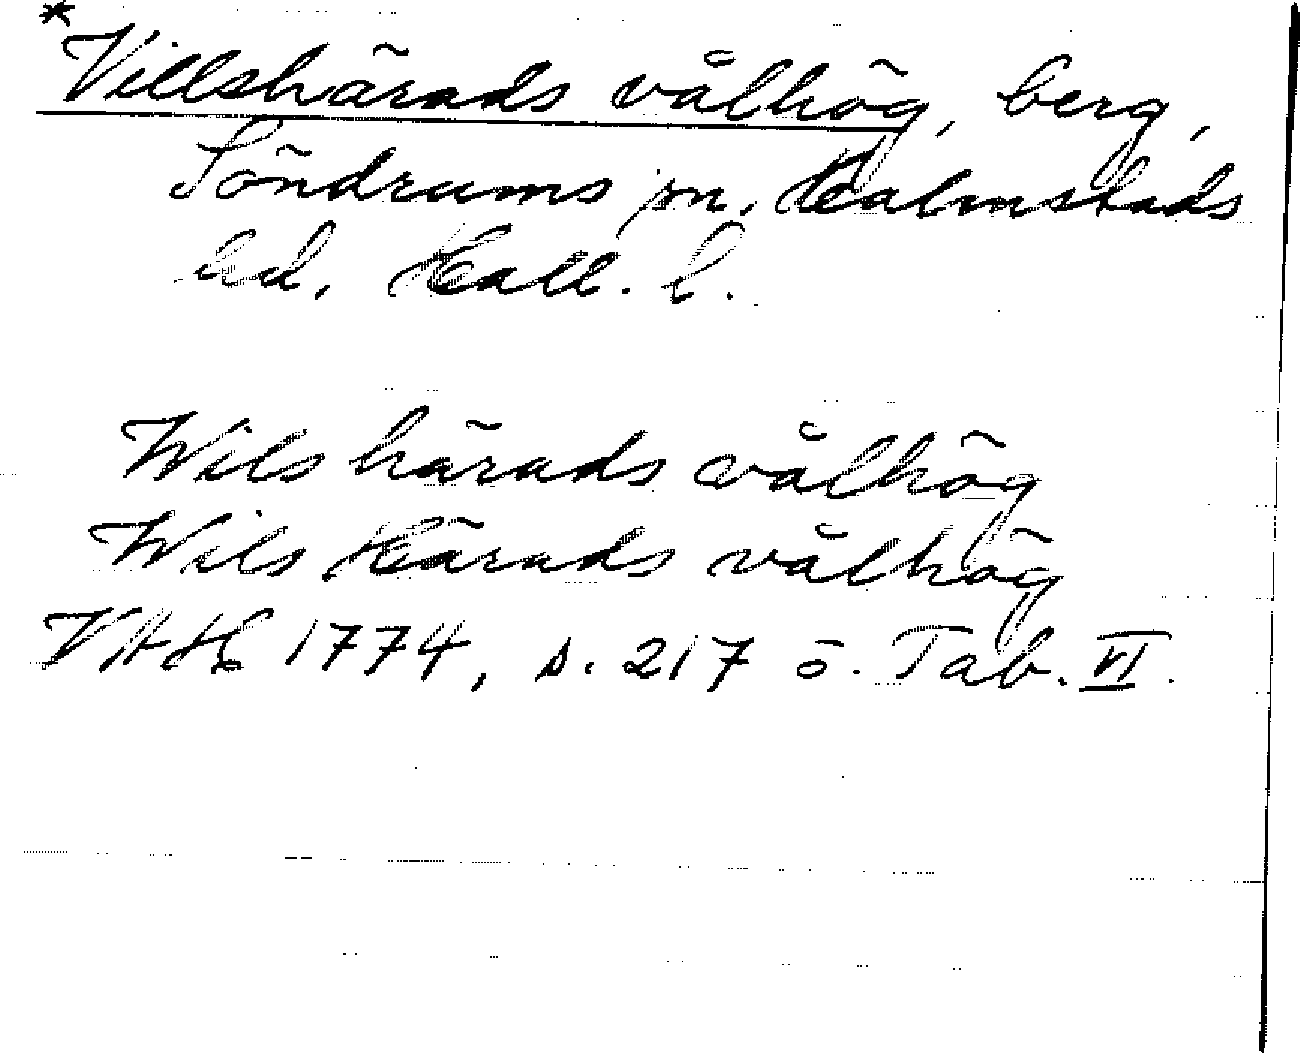 *Villshärads vålhög, berg,
Söndrums sn. Halmstads
hd. Hall. l.
Wils härads vålhög
Wils Härads vålhög
VAH 1774, s. 217 o. Tab. VI.